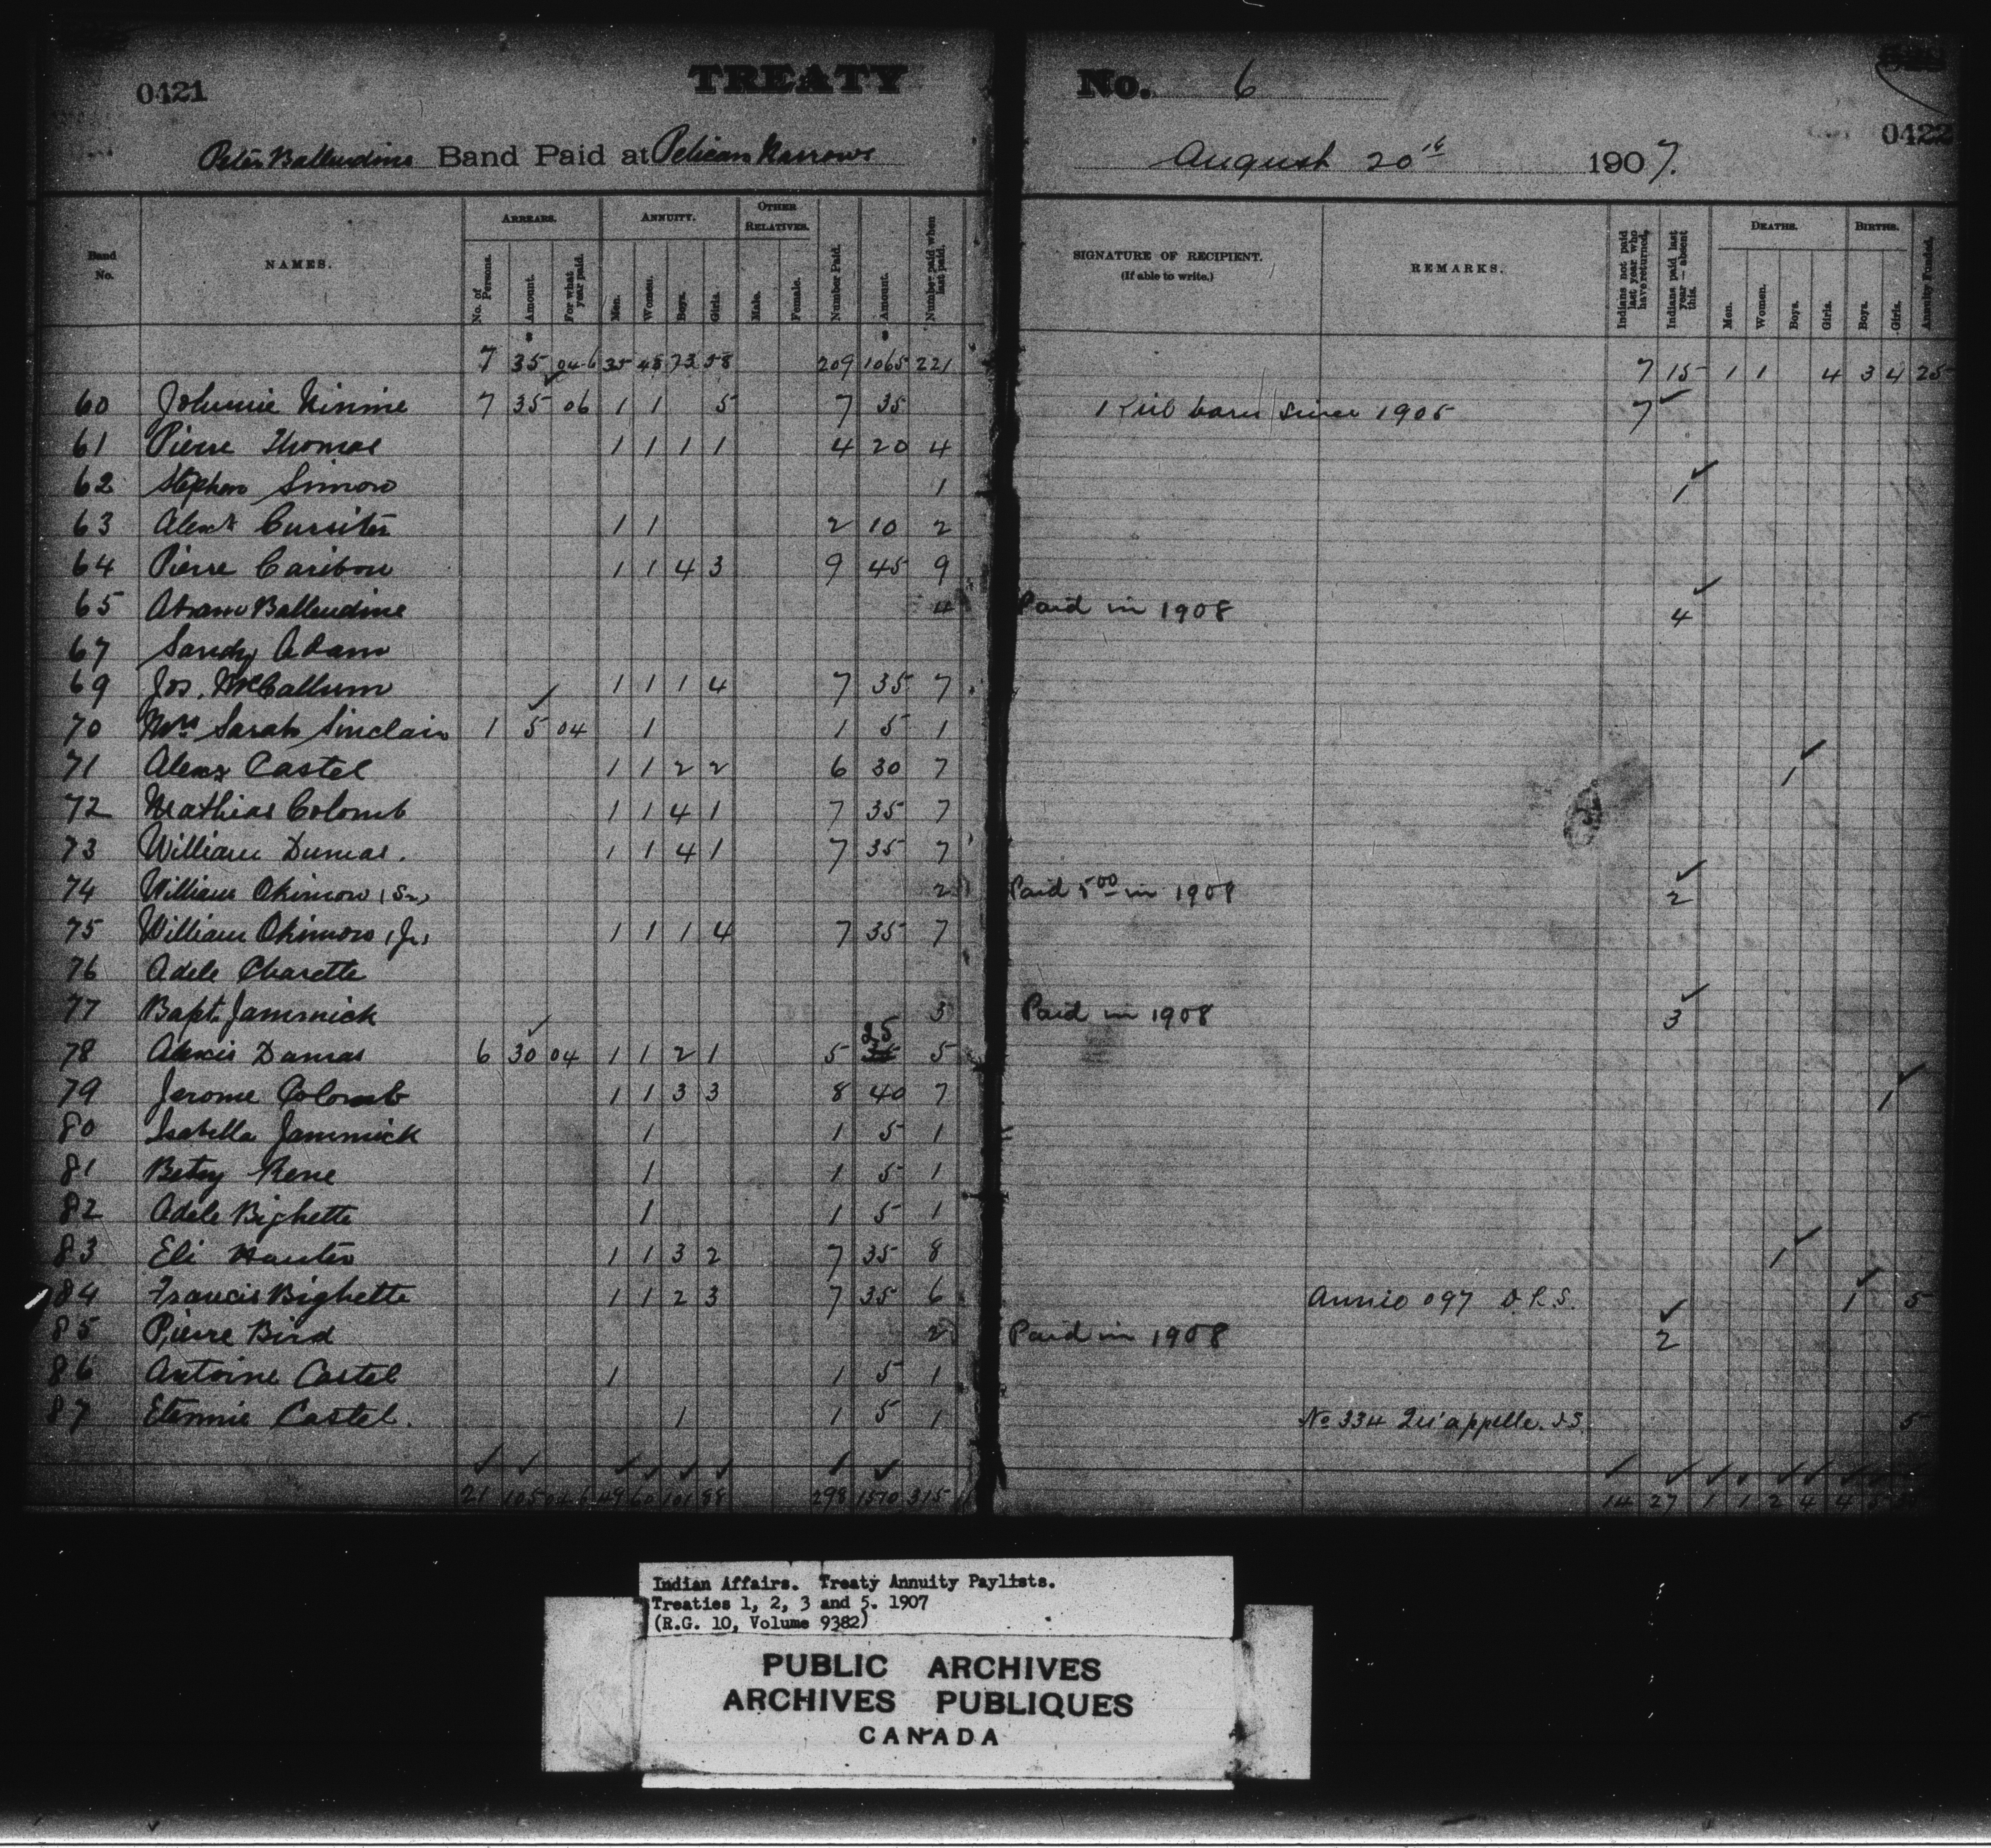 0421 TREATY No. 6
0422
Peter Ballendine Band Paid at Pelican Narrows August 20th 1907.
Band No. NAMES. ARREARS. ANNUITY. OTHER RELATIVES. Number Paid. Amount. Number paid when last paid. SIGNATURE OF RECIPIENT. (If able to write.) REMARKS. Indians not paid last year who have returned. Indians paid last year — absent this. DEATHS. BIRTHS. Annuity Funded.
No. of Persons. Amount. For what year paid. Men. Women. Boys. Girls. Male. Female. Men. Women. Boys. Girls. Boys. Girls.
$ $
7 35 04-6 35 48 73 58 209 1065 221 7 15 1 1 4 3 4 25
60 Johnnie Ninine 7 35 06 1 1 5 7 35 1 born since 1905 7
61 Pierre Thomas 1 1 1 1 4 20 4
62 Stephen Simon 1 1
63 Alexr Cursiter 1 1 2 10 2
64 Pierre Caribou 1 1 4 3 9 45 9
65 Abram Ballendine 4 Paid in 1908 4
67 Sandy Adam
69 Jos. McCallum 1 1 1 4 7 35 7
70 Mrs Sarah Sinclair 1 5 04 1 1 5 1
71 Alexr Castel 1 1 2 2 6 30 7 1
72 Mathias Colomb 1 1 4 1 7 35 7
73 William Dumas. 1 1 4 1 7 35 7
74 William Okimow (Sr) 2 Paid 5 00 in 1908 2
75 William Okimow (Jr) 1 1 1 4 7 35 7
76 Adele Charette
77 Bapt. Jammick 3 Paid in 1908 3
78 Alexis Dumas 6 30 04 1 1 2 1 5 25 5
79 Jerome Colomb 1 1 3 3 8 40 7 1
80 Isabella Jammick 1 1 5 1
81 Betsy Rene 1 1 5 1
82 Adele Bighette 1 1 5 1
83 Eli Hunter 1 1 3 2 7 35 8 1
84 Francis Bighette 1 1 2 3 7 35 6 Annie 097 D.R.S. 1 5
85 Pierre Bird 2 Paid in 1908 2
86 Antoine Castel 1 1 5 1
87 Etennie Castel. 1 1 5 1 No 334 Qu'appelle. I.S. 5
21 105 04-6 49 60 101 88 298 1510 315 14 27 1 1 2 4 4 5
Indian Affairs. Treaty Annuity Paylists.
Treaties 1, 2, 3 and 5. 1907
(R.G. 10, Volume 9382)
PUBLIC ARCHIVES
ARCHIVES PUBLIQUES
CANADA